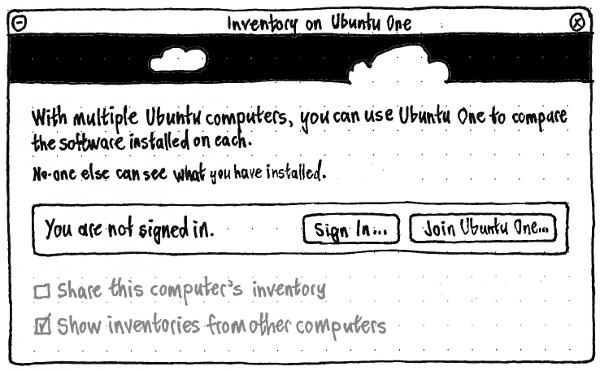 Inventory on Ubuntu One
With multiple Ubuntu computers, you can use Ubuntu One to compare
the software installed on each.
No-one else can see what you have installed.
You are not signed in. Sign In... Join Ubuntu One...
Share this computer's inventory
Show inventories from other computers